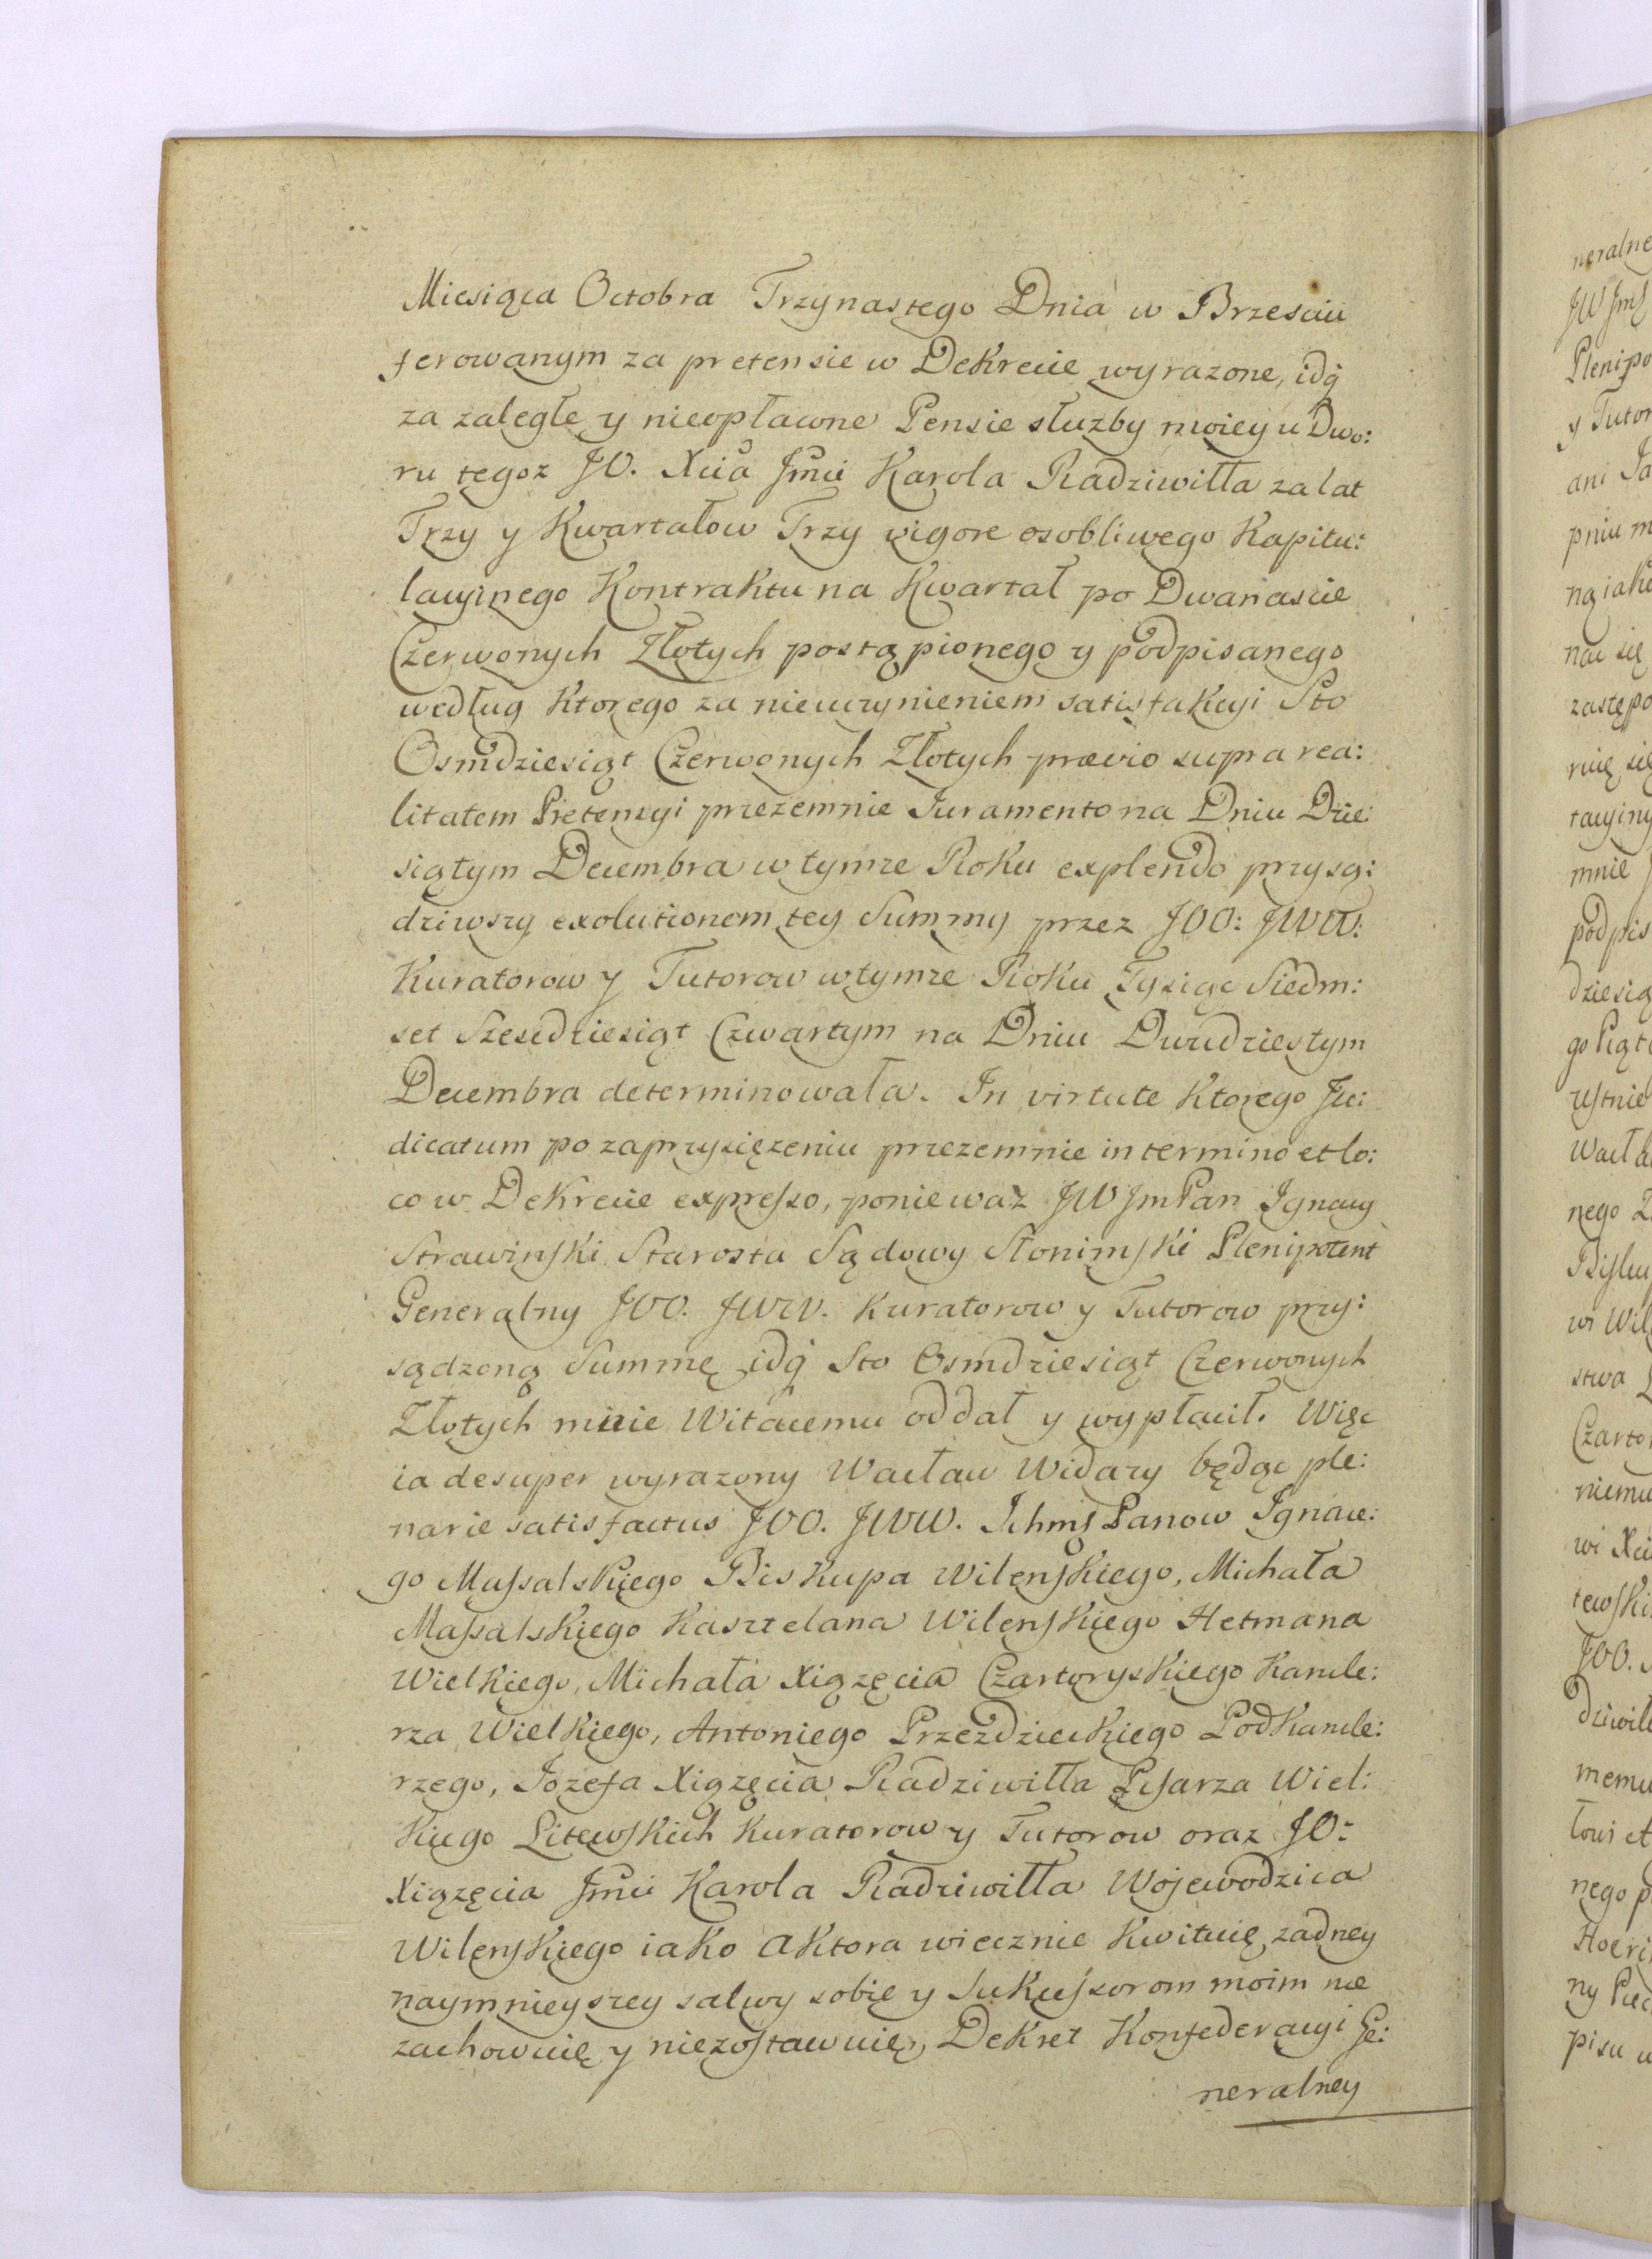 Miesiąca Octobra Trzynastego Dnia w Brzesciu
ferowanym za pretensie w Dekrecie wyrazone, idq
za zaległe y nieopłacone Pensie słuzby moiey u Dwo:
ru tegoz JO. Xcia Jmci Karola Radziwiłła za lat
Trzy y Kwartałow Trzy vigore osobliwego Kapitu:
lacyinego Kontraktu na Kwartał po Dwanascie
Czerwonych Złotych postąpionego y podpisanego
według ktorego za nieuczynieniem satisfakcyi Sto
Osmdziesiąt Czerwonych Złotych prævio supra rea:
litatem Pretensyi przezemnie Juramento na Dniu Dzie:
siątym Decembra w tymze Roku explendo przysą:
dziwszy exolutionem tey Summy przez JOO: JWW:
Kuratorow y Tutorow w tymze Roku Tysiąc Siedm:
set Szescdziesiąt Czwartym na Dniu Dwudziestym
Decembra determinowała. In virtute ktorego Ju:
dicatum po zaprzysiężeniu przezemnie in termino et lo:
co w Dekrecie expresso, poniewaz JW JmPan Ignacy
Strawinski Starosta Sądowy Słonimski Plenipotent
Generalny JOO. JWW. Kuratorow y Tutorow przy:
sądzoną Summę idq Sto Osmdziesiąt Czerwonych
Złotych mnie Witacemu oddał y wypłacił. Więc
ia desuper wyrazony Wacław Widazy będąc ple:
narie satisfactus JOO. JWW. Ichmś Panow Ignace:
go Massalskiego Biskupa Wilenskiego, Michała
Massalskiego Kasztelana Wilenskiego Hetmana
Wielkiego, Michała Xiążęcia Czartoryskiego Kancle:
rza Wielkiego, Antoniego Przezdzieckiego Podkancle:
rzego, Jozefa Xiążęcia Radziwiłła Pisarza Wiel:
kiego Litewskich Kuratorow y Tutorow oraz JO:
Xiążęcia Jmci Karola Radziwiłła Wojewodzica
Wilenskiego iako Aktora wiecznie kwituię, zadney
naymnieyszey salwy sobie y Sukcessorom moim nie
zachowuię y niezostawuię, Dekret Konfederacyi Ge:
neralney